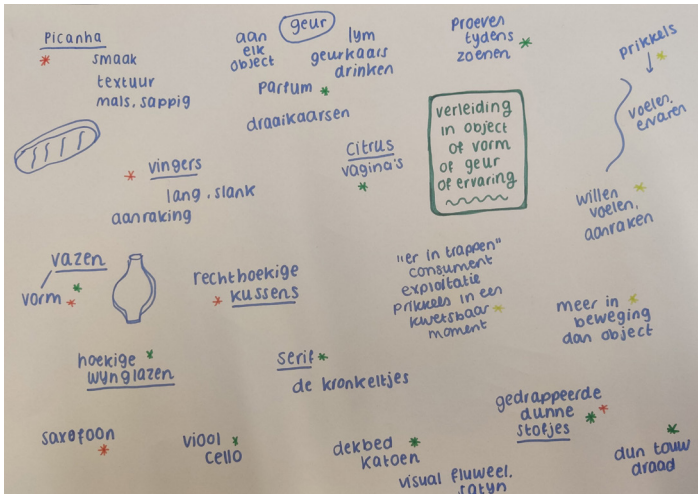 Picanha
smaak
textuur
mals, sappig
aan
elk
object
geur
lijm
geurkaars
drinken
parfum
draaikaarsen
proeven
tydens
zoenen
prikkels
voelen,
ervaren
willen
voelen,
aanraken
verleiding
in object
of vorm
of geur
of ervaring
citrus
vagina's
vingers
lang, slank
aanraking
vazen
vorm
rechthoekige
kussens
"er in trappen"
consument
exploitatie
prikkels in een
kwetsbaar
moment
meer in
beweging
dan object
hoekige
wynglazen
serif
de kronkeltjes
gedrappeerde
dunne
stofjes
saxofoon
viool
cello
dekbed
katoen
visual fluweel.
satyn
dun touw
draad